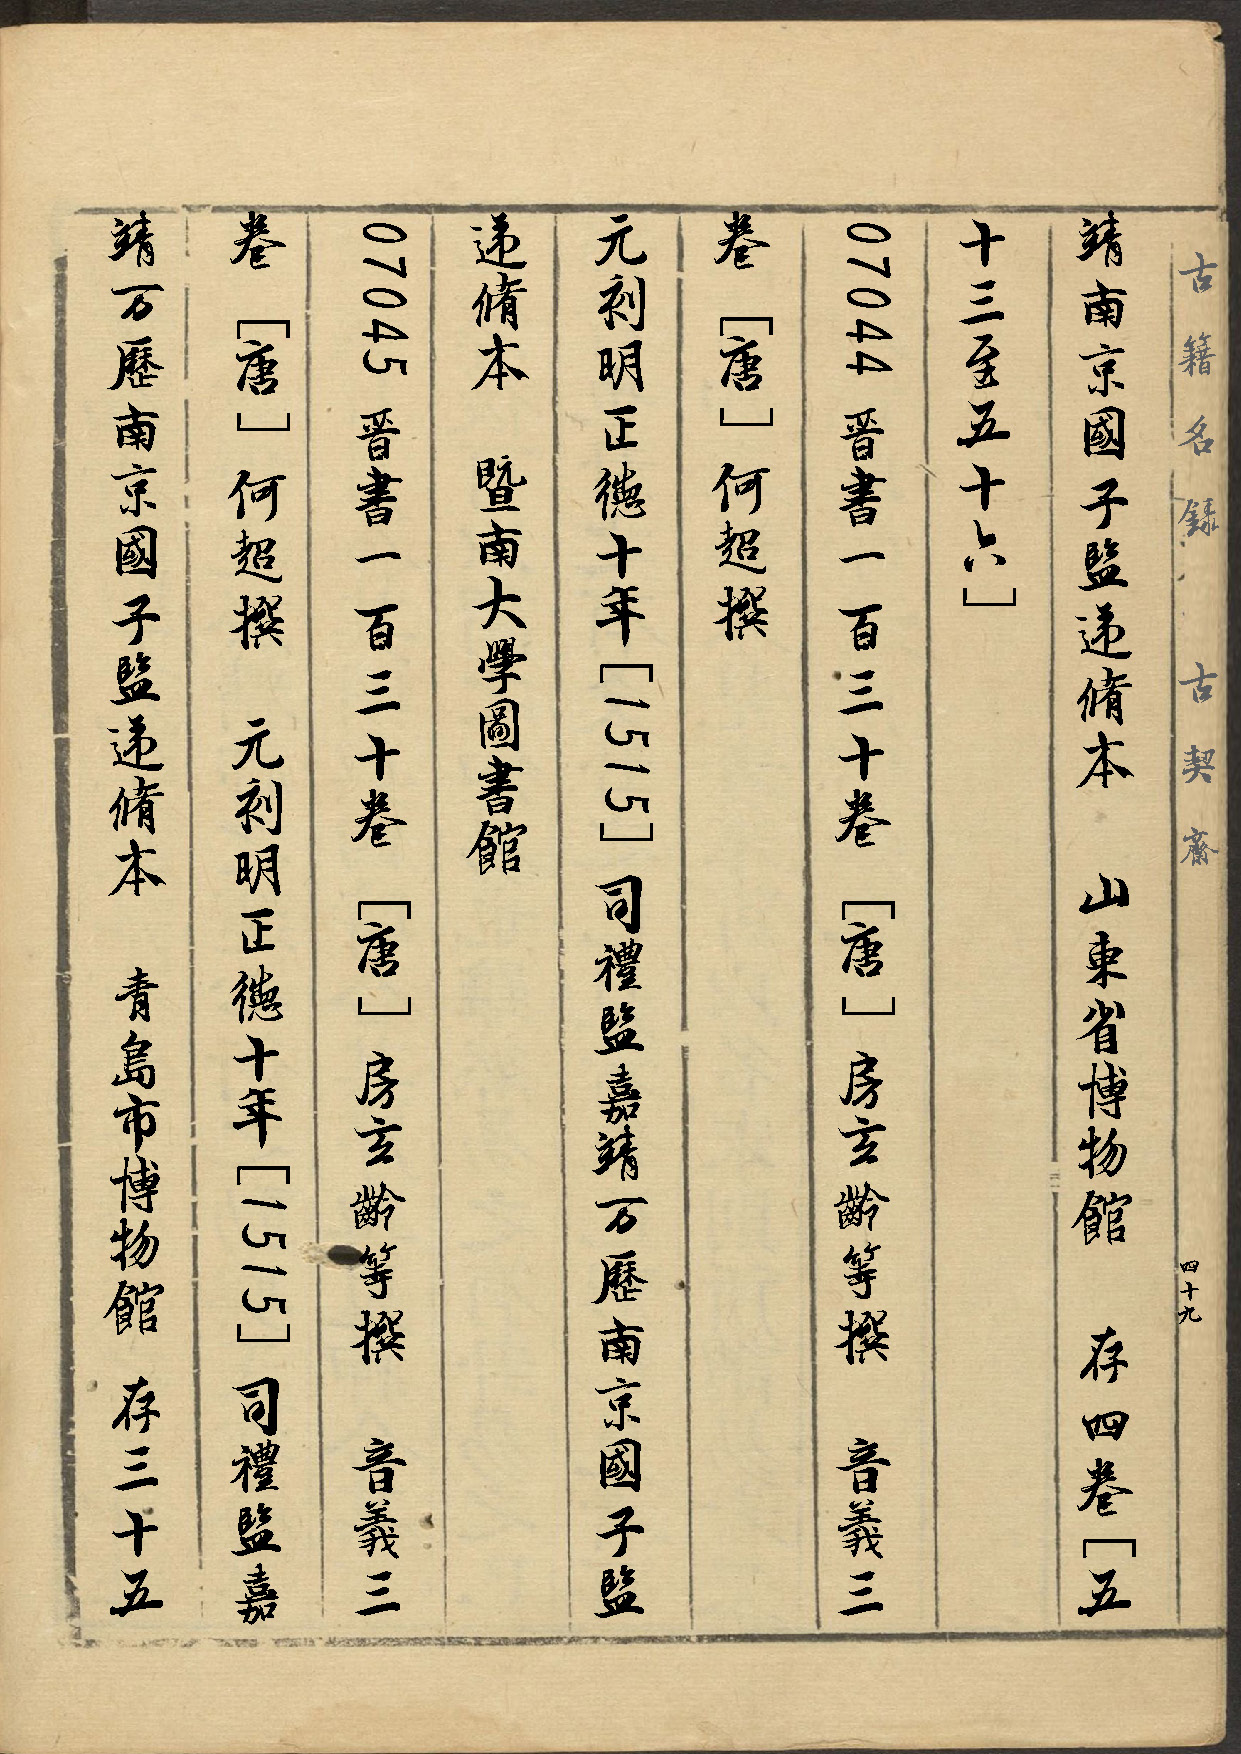 古籍名録 古契齋
四十九
靖南京國子監递脩本 山東省博物館 存四卷[五
十三至五十六]
07044 晉書一百三十卷 [唐]房玄齡等撰 音義三
卷 [唐]何超撰
元刻明正德十年[1515]司禮監嘉靖万歷南京國子監
递脩本 暨南大學圖書館
07045 晉書一百三十卷 [唐]房玄齡等撰 音義三
卷 [唐]何超撰 元刻明正德十年[1515]司禮監嘉
靖万歷南京國子監递脩本 青島市博物館 存三十五